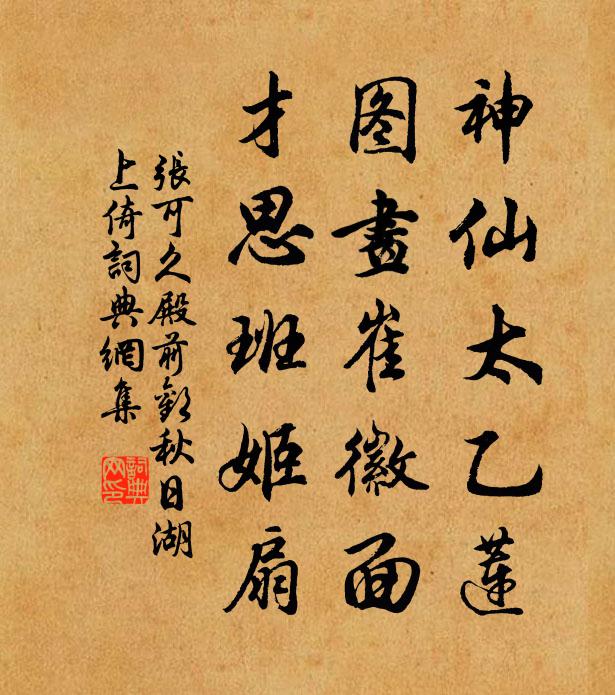 神仙太乙蓮
图畫崔徽面
才思班姬扇
張可久殿前歡秋日湖
上倚詞典網集
詞典